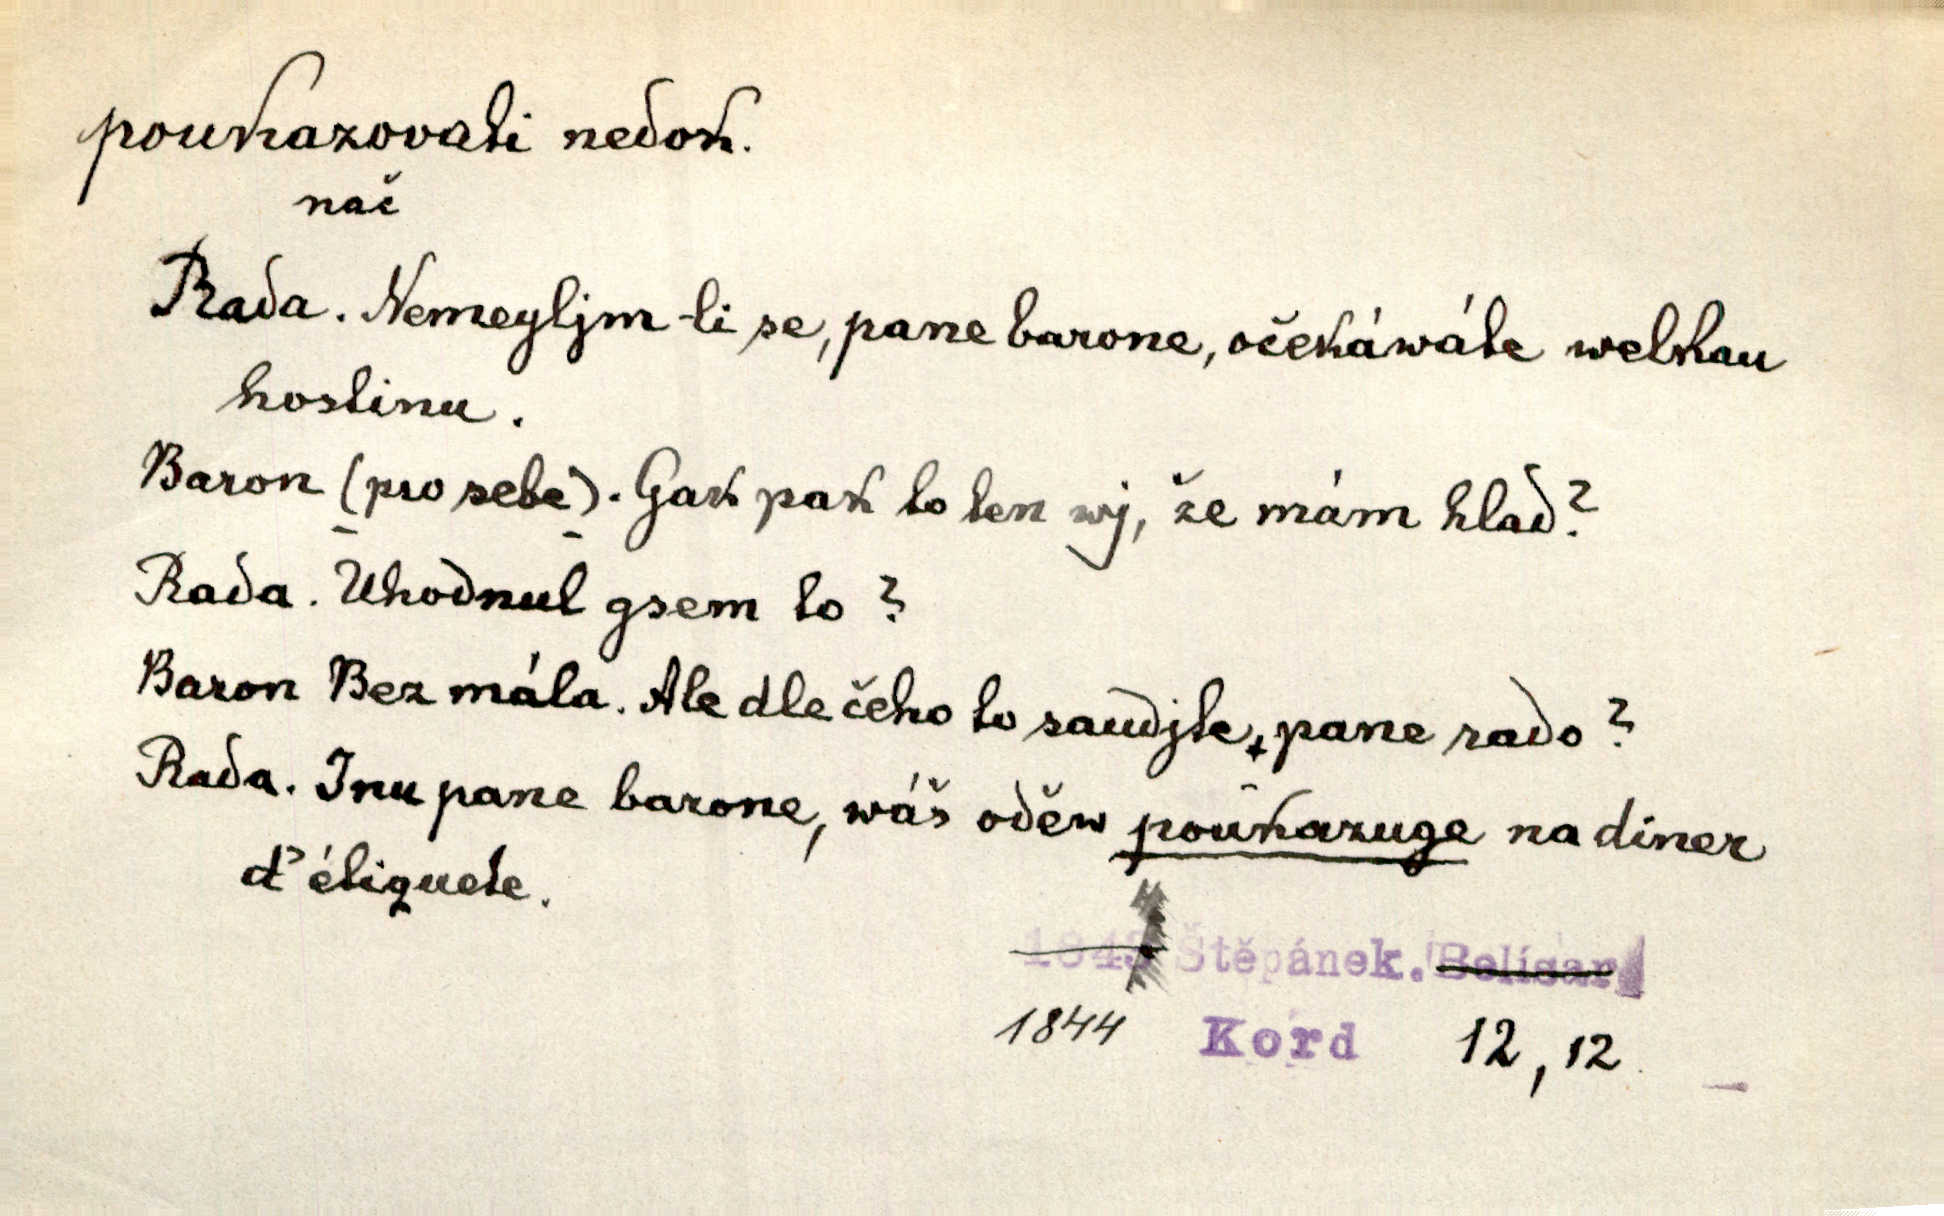 poukazovati nedok.
nač
Rada. Nemeyljm-li se, pane barone, očekáwáte welkau
hostinu.
Baron (pro sebe). Gak pak to ten wj, že mám hlad?
Rada. Uhodnul gsem to?
Baron Bez mála. Ale dle čeho to saudjte, pane rado?
Rada. Inu pane barone, wáš oděw poukazuge na diner
d'étiquete.
1843 Štěpánek. Belisar
1844 Kord 12, 12